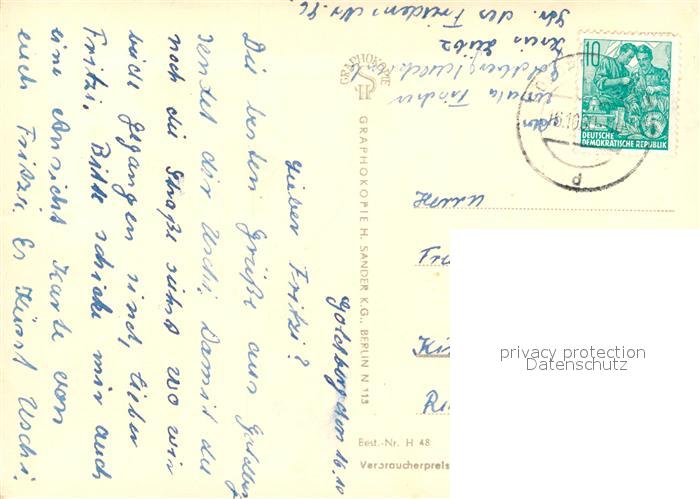 Goldberg den 16.10
Lieber Fritzi?
Die besten Grüße aus Goldberg
sendet dir Uschi. Damit du
noch die Straße siehst wo wir
beide gegangen sind, lieber
Fritzi. Bitte schicke mir auch
eine Ansicht Karte von
euch Fritzi. Es Küsst Uschi.
Str. des Friedens Nr. 86
Kreis Lübz
Goldberg
GRAPHOKOPIE
H
GRAPHOKOPIE H. SANDER K.G., BERLIN N 113
10
DEUTSCHE
DEMOKRATISCHE REPUBLIK
d
Herrn
privacy protection
Datenschutz
Best.-Nr. H 48
Verbraucherpreis